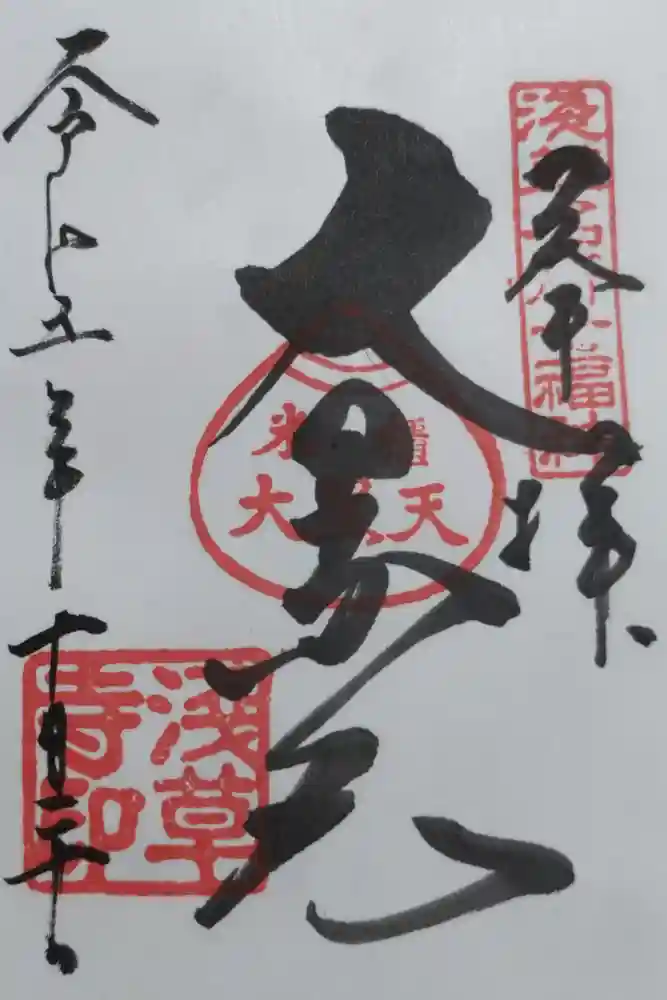 淺草名所七福神
奉拝
大黒天
大黒天
令和五年十月二十日
淺草寺印